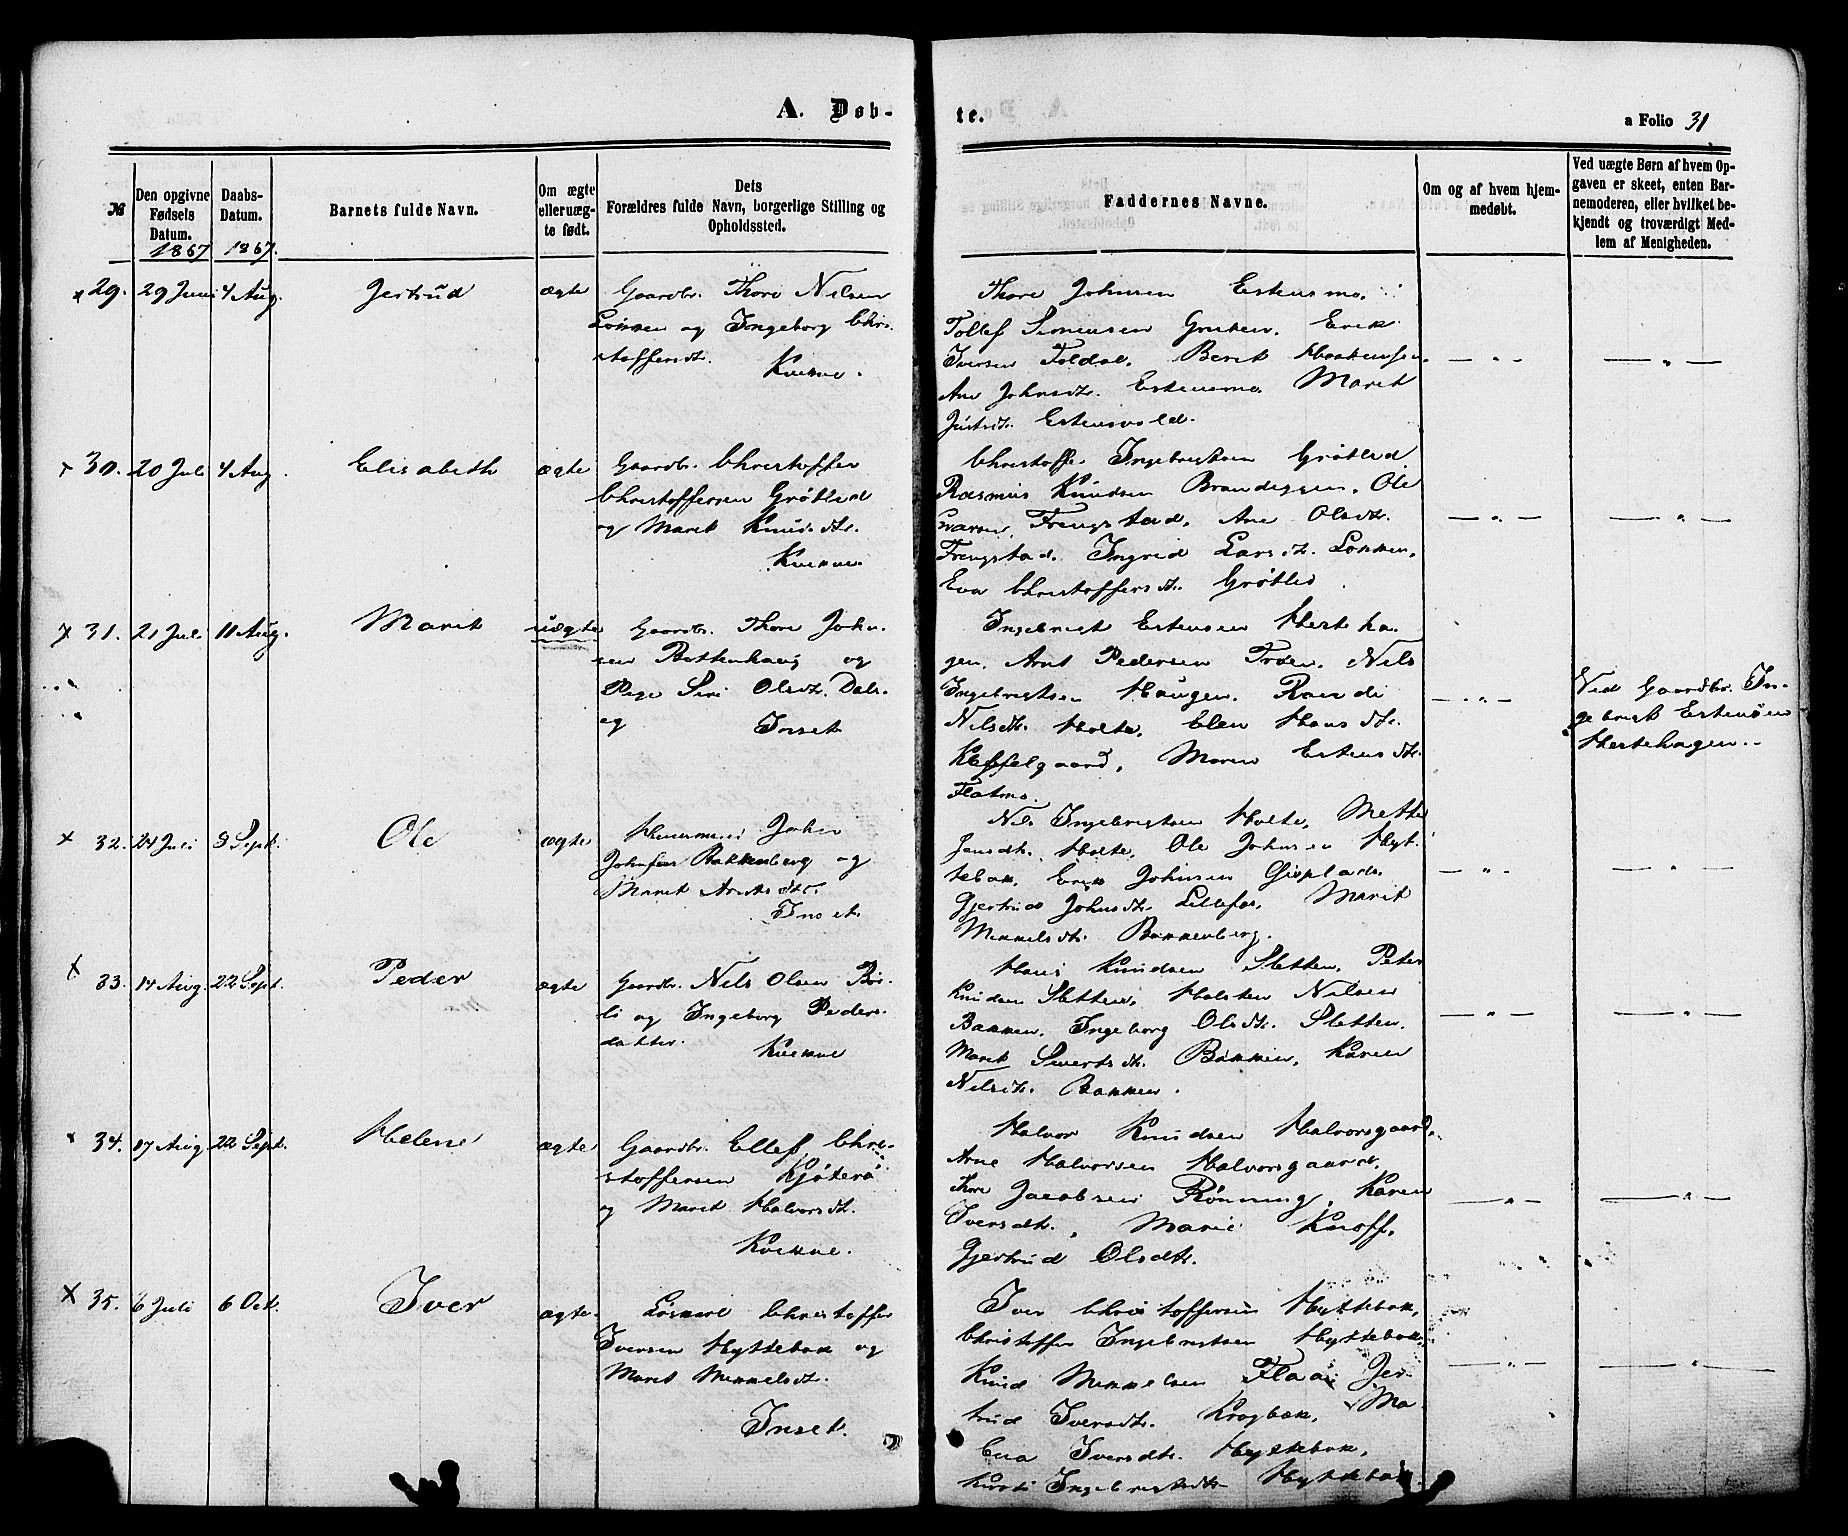 A. Døb-
te.
a Folio 31
№
Den opgivne
Fødsels
Datum.
1867
Daabs-
Datum.
1867.
Barnets fulde Navn.
Om ægte
eller uæg-
te født.
Dets
Forældres fulde Navn, borgerlige Stilling og
Opholdssted.
Faddernes Navne.
Om og af hvem hjem-
medøbt.
Ved uægte Børn af hvem Op-
gaven er skeet, enten Bar-
nemoderen, eller hvilket be-
kjendt og troværdigt Med-
lem af Menigheden.
x 29. 29 Juni 4 Aug. Jertrud ægte Gaardbr. Thore Nilsen
Lonken og Ingeborg Chri-
stoffersdt.
Kvikne.
Thore Johnsen Estensmo.
Tollef Simensen Gruben, Erik
Iversen Foldal, Berit Haakensen
Ane Johnsdt. Estensmo Marit
Justsdt. Estensvold.
— " — — " —
x 30. 20 Juli 4 Aug. Elisabeth ægte Gaardbr. Christoffer
Christoffersen Grøtlid
og Marit Knudsdtr.
Kvikne
Christoffer Ingebrigtsen Grøtlid
Rasmus Knudsen Brandeggen, Ole
Frengstad, Ane Olsdt.
Frengstad, Ingrid Larsdt. Lonken,
Eva Christoffersdt. Grøtlid.
— " — — " —
x 31. 21 Jul. 11 Aug. Marit uægte Gaardbr. Thore John-
sen Bottenhaug og
Pige Siri Olsdt. Dals-
eg Inset
Ingebrigt Estensen Hesteha-
gen, Arnt Pedersen Troen, Nils
Ingebrigtsen Haugen, Randi
Nilsdt. Holte, Elen Hansdt.
Keffelgaard, Maren Estensdt.
Flatmo.
— " —
Ved Gaardbr. In-
gebrigt Estensen
Hestehagen.
x 32. 24 Juli 8 Sept. Ole ægte Huusmand John
Johnsen Bakkenberg og
Marit Arntsdt.
Inset.
Nils Ingebrigtsen Holte, Mette
Jensdt. Holte, Ole Johnsen Hyt-
tebak, Erik Johnsen Gisplads.
Gjertrud Johnsdt. Lillefos, Marit
Mikkelsdt. Bakkenberg.
— " — — " —
x 33. 14 Aug. 22 Sept. Peder ægte Gaardbr. Nils Olsen Bør-
li og Ingeborg Peders-
datter. Kvikne
Hans Knudsen Sletten, Peter
Knudsen Sletten, Halsten Nilsen
Bakken, Ingeborg Olsdt. Sletten.
Marit Sivertsdt. Bakken, Karen
Nilsdt. Bakken.
— " — — " —
x 34. 17 Aug 22 Sept. Helene ægte Gaardbr. Ellef Chri-
stoffersen Kjøterø
og Marit Halvorsdt.
Kvikne.
Halvor Knudsen Halvorsgaard,
Arne Halvorsen Halvorsgaard,
Thore Jacobsen Rønning, Karen
Iversdt., Marie Knoff,
Gjertrud Olsdt.
— " — — " —
x 35. 6 Juli 6 Oct. Iver ægte Løskarl Christoffer
Iversen Hyttebak og
Marit Mikkelsdt.
Inset.
Iver Christoffersen Hyttebak,
Christoffer Ingebrigtsen Hyttebak,
Knud Mikkelsen Flaa, Jer-
trud Iversdt. Krogbæk, Ma
Iversdt. Hyttebak,
Kirsti Ingebrigtsdt. Hyttebak
— " — — " —